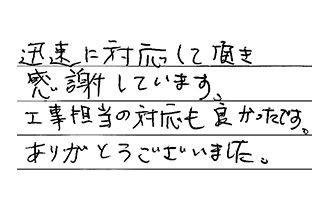 迅速に対応して頂き
感謝しています。
工事担当の対応も良かったです。
ありがとうございました。